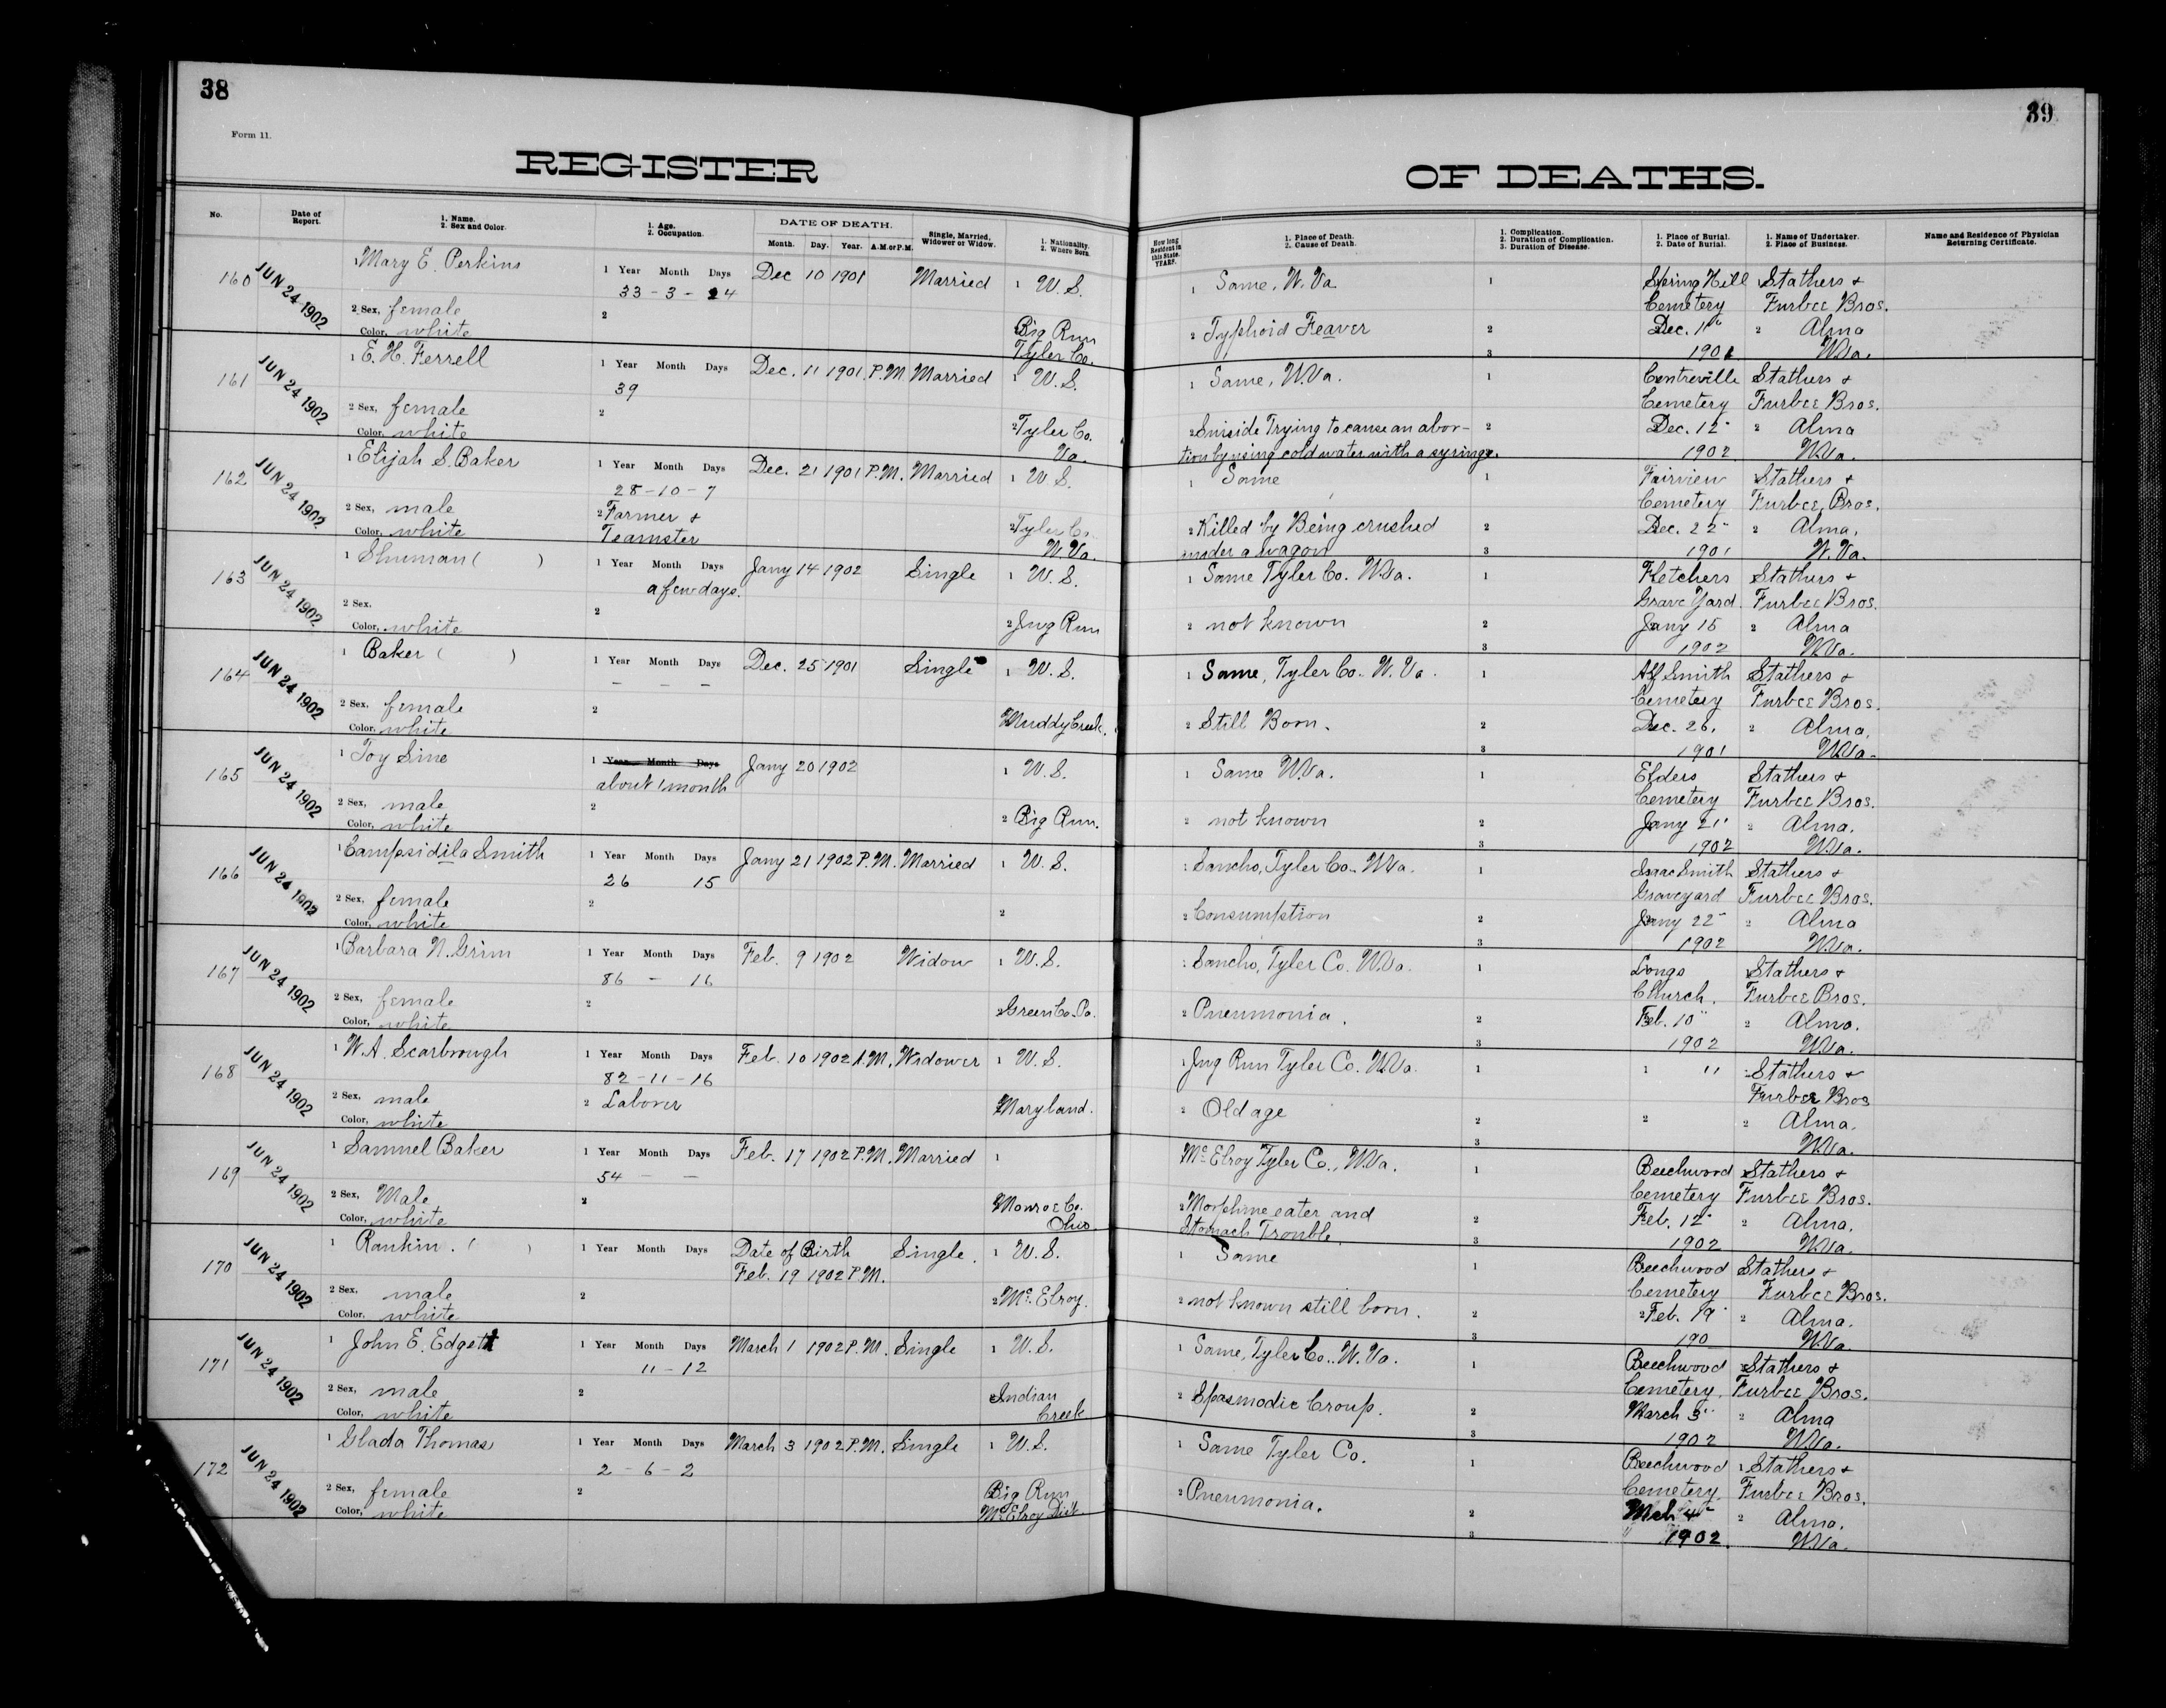 38
Form 11.
REGISTER
No.
Date of Report.
1. Name.
2. Sex and Color.
1. Age.
2. Occupation.
DATE OF DEATH.
Month. Day. Year. A.M. or P.M.
Single, Married, Widower or Widow.
1. Nationality.
2. Where Born.
160 JUN 24 1902
Mary E. Perkins
1 Year Month Days Dec 10 1901 Married 1 W. S.
33 - 3 - 24
2 Sex, female 2 Big Run
Color, white Tyler Co.
161 JUN 24 1902
1 E. H. Ferrell
1 Year Month Days Dec. 11 1901 P.M. Married 1 W. S.
39
2 Sex, female 2 2 Tyler Co.
Color, white Va.
162 JUN 24 1902
1 Elijah S. Baker
1 Year Month Days Dec. 21 1901 P.M. Married 1 W. S.
28-10-7
2 Sex, male 2 Farmer + 2 Tyler Co.
Color, white Teamster W. Va.
163 JUN 24 1902
1 Shuman ( )
1 Year Month Days Jany 14 1902 Single 1 W. S.
a few days.
2 Sex. 2 2 Jug Run
Color, white
164 JUN 24 1902
1 Baker ( )
1 Year Month Days Dec. 25 1901 Single 1 W. S.
- - -
2 Sex, female 2 Muddy Creek.
Color, white
165 JUN 24 1902
1 Toy Sine
1 Year Month Days Jany 20 1902 1 W. S.
about 1 month
2 Sex, male 2 2 Big Run.
Color, white
166 JUN 24 1902
1 Campsidila Smith
1 Year Month Days Jany 21 1902 P.M. Married 1 W. S.
26 15
2 Sex, female 2 2
Color, white
167 JUN 24 1902
1 Barbara N. Grim
1 Year Month Days Feb. 9 1902 Widow 1 W. S.
86 - 16
2 Sex, female 2 2 Green Co. Pa.
Color, white
168 JUN 24 1902
1 W. A. Scarbrough
1 Year Month Days Feb. 10 1902 A.M. Widower 1 W. S.
82-11-16
2 Sex, male 2 Laborer Maryland.
Color, white
169 JUN 24 1902
1 Samuel Baker
1 Year Month Days Feb. 17 1902 P.M. Married 1
54 - -
2 Sex, Male 2 Monroe Co.
Color, white Ohio.
170 JUN 24 1902
1 Rankin. ( )
1 Year Month Days Date of Birth Single. 1 W. S.
Feb. 19 1902 P.M.
2 Sex, male 2 2 Mc. Elroy.
Color, white
171 JUN 24 1902
1 John E. Edgett
1 Year Month Days March 1 1902 P.M. Single 1 W. S.
11-12
2 Sex, male 2 Indian
Color, white Creek
172 JUN 24 1902
1 Glada Thomas
1 Year Month Days March 3 1902 P.M. Single 1 W. S.
2-6-2
2 Sex, female 2 Big Run
Color, white Mc Elroy Dist.
39
OF DEATHS.
How long Resident in this State. YEARS.
1. Place of Death.
2. Cause of Death.
1. Complication.
2. Duration of Complication.
3. Duration of Disease.
1. Place of Burial.
2. Date of Burial.
1. Name of Undertaker.
2. Place of Business.
Name and Residence of Physician Returning Certificate.
1 Same, W. Va 1 Spring Hill Stathers +
Cemetery Furbee Bros.
2 Typhoid Feaver 2 Dec. 11" 2 Alma
3 1901 W.Va.
1 Same, W.Va. 1 Centreville Stathers +
Cemetery Furbee Bros.
2 Suiside Trying to cause an abor- 2 Dec. 12" 2 Alma
tion by using cold water with a syringe. 1902 W.Va.
1 Same 1 Fairview Stathers +
Cemetery Furbee Bros.
2 Killed by Being crushed 2 Dec. 22" 2 Alma,
under a wagon 3 1901 W. Va.
1 Same Tyler Co. W.Va. 1 Fletchers Stathers +
Grave Yard. Furbee Bros.
2 not known 2 Jany 15 2 Alma
3 1902 W.Va.
1 Same, Tyler Co. W. Va. 1 Alf Smith Stathers +
Cemetery Furbee Bros.
2 Still Born. 2 Dec. 26, 2 Alma,
3 1901 W.Va.
1 Same W.Va. 1 Elders Stathers +
Cemetery Furbee Bros.
2 not known 2 Jany 21" 2 Alma.
3 1902 W.Va.
1 Sancho, Tyler Co. W.Va. 1 Isaac Smith Stathers +
Graveyard Furbee Bros.
2 Consumption 2 Jany 22" 2 Alma
3 1902 W.Va.
1 Sancho, Tyler Co. W.Va. 1 Longs Stathers +
Church. Furbee Bros.
2 Pneumonia. 2 Feb. 10" 2 Alma.
3 1902 W.Va.
1 Jug Run Tyler Co. W.Va. 1 1 " Stathers +
Furbee Bros
2 Old age 2 2 2 Alma.
3 W.Va.
Mc Elroy Tyler Co., W.Va. 1 Beechwood Stathers +
Cemetery Furbee Bros.
2 Morphine eater and 2 Feb. 12" 2 Alma.
Stomach Trouble. 3 1902 W.Va.
1 Same 1 Beechwood Stathers +
Cemetery Furbee Bros.
2 not known still born. 2 2 Feb. 19" 2 Alma.
3 190 W.Va.
1 Same, Tyler Co., W. Va. 1 Beechwood Stathers +
Cemetery. Furbee Bros.
2 Spasmodic Croup. 2 March 3" 2 Alma
3 1902 W.Va.
1 Same Tyler Co. 1 Beechwood 1 Stathers +
Cemetery. Furbee Bros.
2 Pneumonia. 2 Mch 4" 2 Alma.
3 " 1902. W.Va.